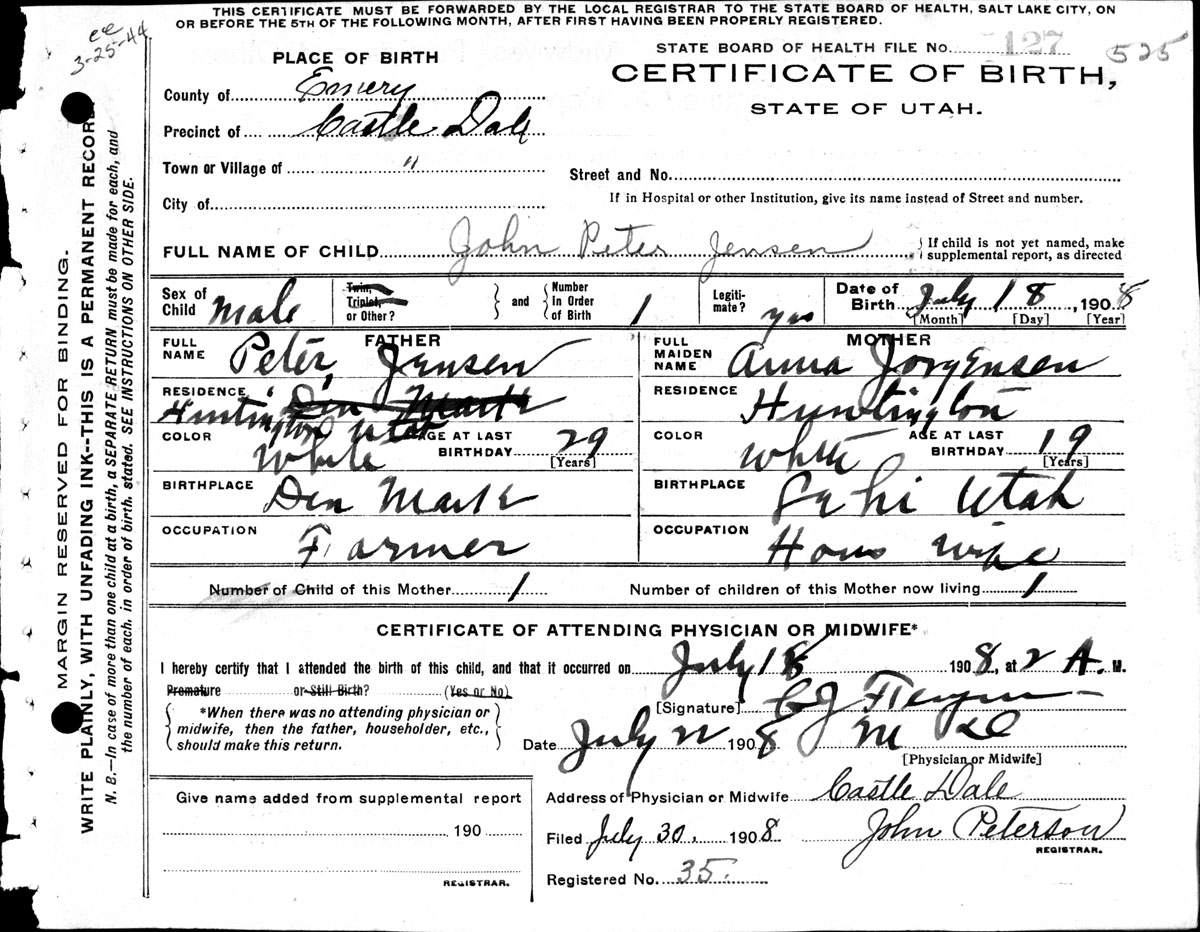 THIS CERTIFICATE MUST BE FORWARDED BY THE LOCAL REGISTRAR TO THE STATE BOARD OF HEALTH, SALT LAKE CITY, ON
OR BEFORE THE 5TH OF THE FOLLOWING MONTH, AFTER FIRST HAVING BEEN PROPERLY REGISTERED.
ee
3-25-44
STATE BOARD OF HEALTH FILE No. 127 525
PLACE OF BIRTH
CERTIFICATE OF BIRTH,
STATE OF UTAH.
County of Emery
Precinct of Castle Dale
Town or Village of "
Street and No.
City of
If in Hospital or other Institution, give its name instead of Street and number.
FULL NAME OF CHILD John Peter Jensen
If child is not yet named, make
supplemental report, as directed
Sex of Child Male
Twin, Triplet, or Other?
and
Number In Order of Birth 1
Legiti-mate? yes
Date of Birth July 18, 1908
[Month] [Day] [Year]
FATHER
FULL NAME Peter Jensen
RESIDENCE Den Mark
Huntington Utah
COLOR White
AGE AT LAST BIRTHDAY 29
[Years]
BIRTHPLACE Den Mark
OCCUPATION Farmer
MOTHER
FULL MAIDEN NAME Anna Jorgensen
RESIDENCE Huntington
COLOR White
AGE AT LAST BIRTHDAY 19
[Years]
BIRTHPLACE Utah
OCCUPATION Hous wife
Number of Child of this Mother 1
Number of children of this Mother now living 1
CERTIFICATE OF ATTENDING PHYSICIAN OR MIDWIFE*
I hereby certify that I attended the birth of this child, and that it occurred on July 18 1908, at 2 A. M.
Premature or Still Birth? (Yes or No)
*When there was no attending physician or
midwife, then the father, householder, etc.,
should make this return.
[Signature]
Date July 22 1908 M D
[Physician or Midwife]
Give name added from supplemental report
190
REGISTRAR.
Address of Physician or Midwife Castle Dale
Filed July 30, 1908 John Peterson
REGISTRAR.
Registered No. 35.
MARGIN RESERVED FOR BINDING.
WRITE PLAINLY, WITH UNFADING INK--THIS IS A PERMANENT RECORD
N. B.—In case of more than one child at a birth, a SEPARATE RETURN must be made for each, and
the number of each, in order of birth, stated. SEE INSTRUCTIONS ON OTHER SIDE.